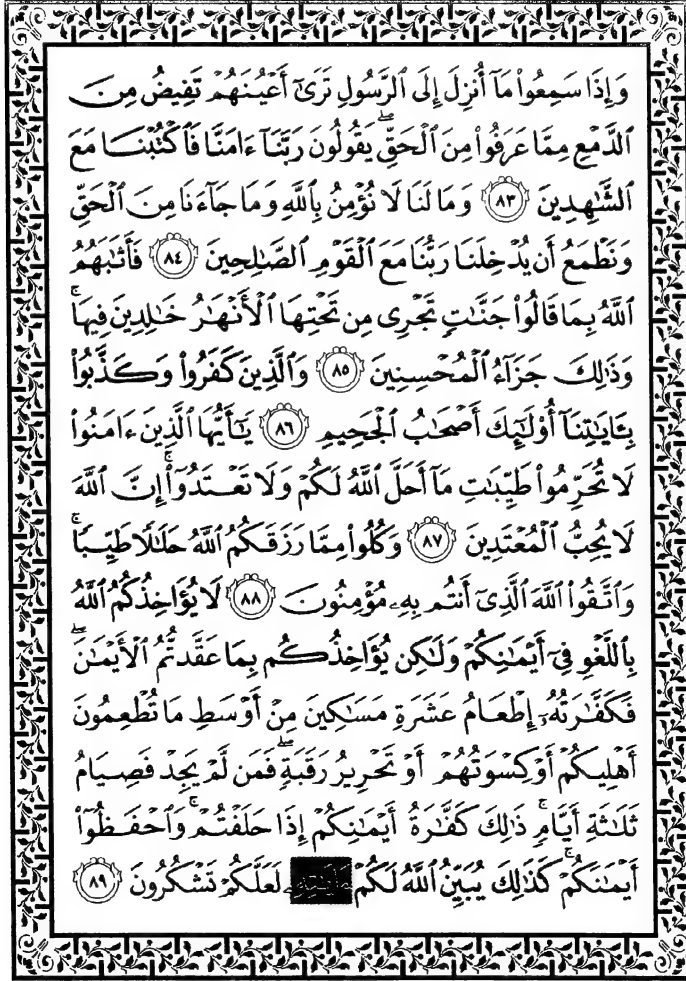 وَإِذَا سَمِعُوا۟ مَآ أُنزِلَ إِلَى ٱلرَّسُولِ تَرَىٰٓ أَعْيُنَهُمْ تَفِيضُ مِنَ
ٱلدَّمْعِ مِمَّا عَرَفُوا۟ مِنَ ٱلْحَقِّ ۖ يَقُولُونَ رَبَّنَآ ءَامَنَّا فَٱكْتُبْنَا مَعَ
ٱلشَّٰهِدِينَ ٨٣ وَمَا لَنَا لَا نُؤْمِنُ بِٱللَّهِ وَمَا جَآءَنَا مِنَ ٱلْحَقِّ
وَنَطْمَعُ أَن يُدْخِلَنَا رَبُّنَا مَعَ ٱلْقَوْمِ ٱلصَّٰلِحِينَ ٨٤ فَأَثَٰبَهُمُ
ٱللَّهُ بِمَا قَالُوا۟ جَنَّٰتٍ تَجْرِى مِن تَحْتِهَا ٱلْأَنْهَٰرُ خَٰلِدِينَ فِيهَا ۚ
وَذَٰلِكَ جَزَآءُ ٱلْمُحْسِنِينَ ٨٥ وَٱلَّذِينَ كَفَرُوا۟ وَكَذَّبُوا۟
بِـَٔايَٰتِنَآ أُو۟لَٰٓئِكَ أَصْحَٰبُ ٱلْجَحِيمِ ٨٦ يَٰٓأَيُّهَا ٱلَّذِينَ ءَامَنُوا۟
لَا تُحَرِّمُوا۟ طَيِّبَٰتِ مَآ أَحَلَّ ٱللَّهُ لَكُمْ وَلَا تَعْتَدُوٓا۟ ۚ إِنَّ ٱللَّهَ
لَا يُحِبُّ ٱلْمُعْتَدِينَ ٨٧ وَكُلُوا۟ مِمَّا رَزَقَكُمُ ٱللَّهُ حَلَٰلًا طَيِّبًا ۚ
وَٱتَّقُوا۟ ٱللَّهَ ٱلَّذِىٓ أَنتُم بِهِۦ مُؤْمِنُونَ ٨٨ لَا يُؤَاخِذُكُمُ ٱللَّهُ
بِٱللَّغْوِ فِىٓ أَيْمَٰنِكُمْ وَلَٰكِن يُؤَاخِذُكُم بِمَا عَقَّدتُّمُ ٱلْأَيْمَٰنَ ۖ
فَكَفَّٰرَتُهُۥٓ إِطْعَامُ عَشَرَةِ مَسَٰكِينَ مِنْ أَوْسَطِ مَا تُطْعِمُونَ
أَهْلِيكُمْ أَوْ كِسْوَتُهُمْ أَوْ تَحْرِيرُ رَقَبَةٍ ۖ فَمَن لَّمْ يَجِدْ فَصِيَامُ
ثَلَٰثَةِ أَيَّامٍ ۚ ذَٰلِكَ كَفَّٰرَةُ أَيْمَٰنِكُمْ إِذَا حَلَفْتُمْ ۚ وَٱحْفَظُوٓا۟
أَيْمَٰنَكُمْ ۚ كَذَٰلِكَ يُبَيِّنُ ٱللَّهُ لَكُمْ لَعَلَّكُمْ تَشْكُرُونَ ٨٩